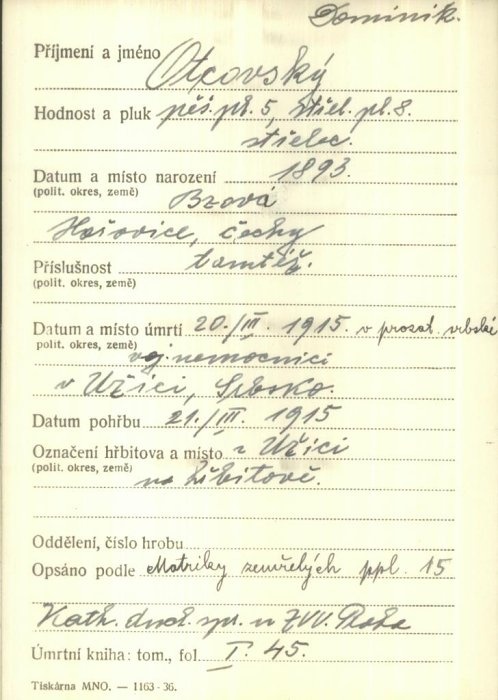 Dominik.
Příjmení a jméno Otxovský
Hodnost a pluk pěš. pl. 5, střel. pl. 8.
střelec.
Datum a místo narození 1893.
(polit. okres, země) Bzová
Hořovice, čechy
Příslušnost tamtéž.
(polit. okres, země)
Datum a místo úmrtí 20./III. 1915 v prozat. srbské
polit. okres, země) voj. nemocnici
v Užici, Srbsko.
Datum pohřbu 21./III. 1915
Označení hřbitova a místo v Užici
(polit. okres, země) na hřbitově.
Oddělení, číslo hrobu
Opsáno podle Matriky zemřelých ppl. 15
Kath. duch. spr. u ZVV. Praha
Úmrtní kniha: tom., fol. I. 45.
Tiskárna MNO. — 1163-36.